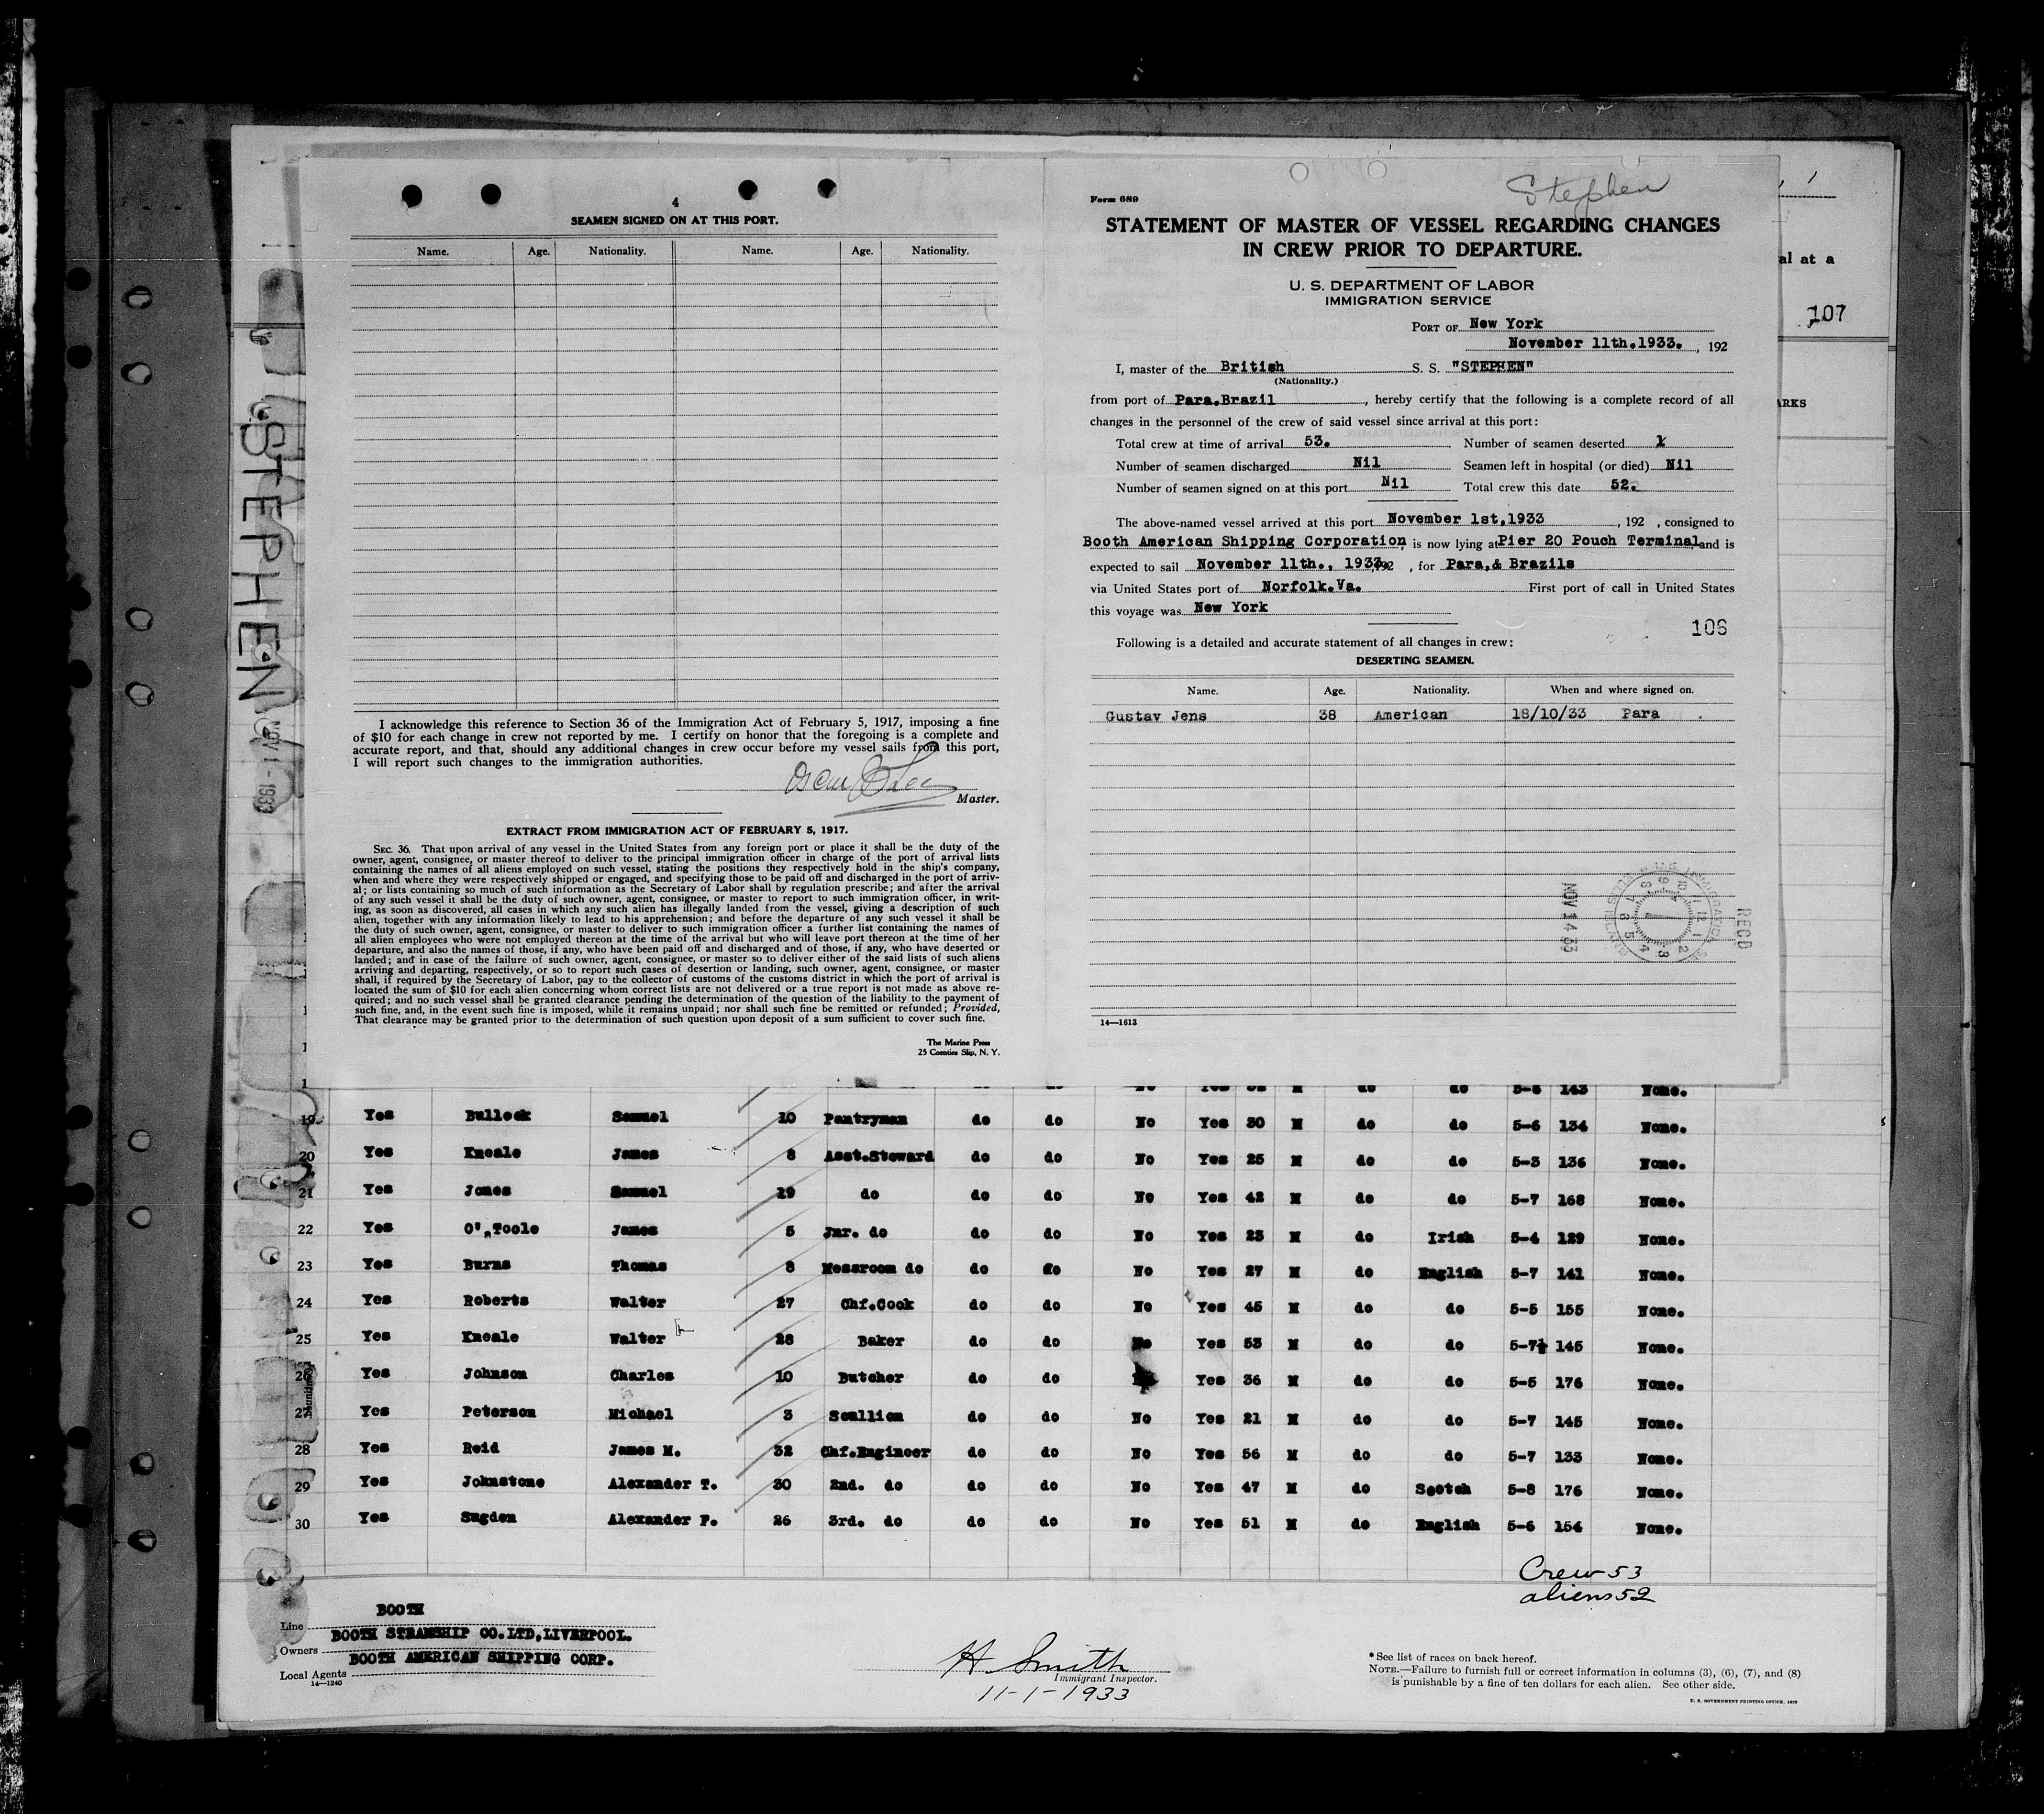 4
SEAMEN SIGNED ON AT THIS PORT.
Name. Age. Nationality. Name. Age. Nationality.
I acknowledge this reference to Section 36 of the Immigration Act of February 5, 1917, imposing a fine
of $10 for each change in crew not reported by me. I certify on honor that the foregoing is a complete and
accurate report, and that, should any additional changes in crew occur before my vessel sails from this port,
I will report such changes to the immigration authorities.
Master.
EXTRACT FROM IMMIGRATION ACT OF FEBRUARY 5, 1917.
SEC. 36. That upon arrival of any vessel in the United States from any foreign port or place it shall be the duty of the
owner, agent, consignee, or master thereof to deliver to the principal immigration officer in charge of the port of arrival lists
containing the names of all aliens employed on such vessel, stating the positions they respectively hold in the ship's company,
when and where they were respectively shipped or engaged, and specifying those to be paid off and discharged in the port of arriv-
al; or lists containing so much of such information as the Secretary of Labor shall by regulation prescribe; and after the arrival
of any such vessel it shall be the duty of such owner, agent, consignee, or master to report to such immigration officer, in writ-
ing, as soon as discovered, all cases in which any such alien has illegally landed from the vessel, giving a description of such
alien, together with any information likely to lead to his apprehension; and before the departure of any such vessel it shall be
the duty of such owner, agent, consignee, or master to deliver to such immigration officer a further list containing the names of
all alien employees who were not employed thereon at the time of the arrival but who will leave port thereon at the time of her
departure, and also the names of those, if any, who have been paid off and discharged and of those, if any, who have deserted or
landed; and in case of the failure of such owner, agent, consignee, or master so to deliver either of the said lists of such aliens
arriving and departing, respectively, or so to report such cases of desertion or landing, such owner, agent, consignee, or master
shall, if required by the Secretary of Labor, pay to the collector of customs of the customs district in which the port of arrival is
located the sum of $10 for each alien concerning whom correct lists are not delivered or a true report is not made as above re-
quired; and no such vessel shall be granted clearance pending the determination of the question of the liability to the payment of
such fine, and, in the event such fine is imposed, while it remains unpaid; nor shall such fine be remitted or refunded; Provided,
That clearance may be granted prior to the determination of such question upon deposit of a sum sufficient to cover such fine.
The Marine Press
25 Coenties Slip, N. Y.
Stephen
Form 689
STATEMENT OF MASTER OF VESSEL REGARDING CHANGES
IN CREW PRIOR TO DEPARTURE.
U. S. DEPARTMENT OF LABOR
IMMIGRATION SERVICE
PORT OF New York
November 11th.1933. , 192
I, master of the British S. S. "STEPHEN"
(Nationality.)
from port of Para.Brazil , hereby certify that the following is a complete record of all
changes in the personnel of the crew of said vessel since arrival at this port:
Total crew at time of arrival 53. Number of seamen deserted 1
Number of seamen discharged Nil Seamen left in hospital (or died) Nil
Number of seamen signed on at this port Nil Total crew this date 52.
The above-named vessel arrived at this port November 1st,1933 , 192 , consigned to
Booth American Shipping Corporation, is now lying at Pier 20 Pouch Terminal and is
expected to sail November 11th., 1933, 192 , for Para,& Brazils
via United States port of Norfolk.Va. First port of call in United States
this voyage was New York
106
Following is a detailed and accurate statement of all changes in crew:
DESERTING SEAMEN.
Name. Age. Nationality. When and where signed on.
Gustav Jens 38 American 18/10/33 Para .
REC'D
U.S. IMMIGRATION
NOV 14 33
14—1613
al at a
107
ARKS
STEPHEN
NOV 1 - 1933
5-8 143 None.
19 Yes Bullock Samuel 10 Pantryman do do No Yes 30 M do do 5-6 134 None.
20 Yes Kneale James 8 Asst.Steward do do No Yes 25 M do do 5-3 136 None.
21 Yes Jones Samuel 19 do do do No Yes 42 M do do 5-7 168 None.
22 Yes O',Toole James 5 Jnr. do do do No Yes 23 M do Irish 5-4 129 None.
23 Yes Burns Thomas 8 Messroom do do do No Yes 27 M do English 5-7 141 None.
24 Yes Roberts Walter 27 Chf.Cook do do No Yes 45 M do do 5-5 155 None.
25 Yes Kneale Walter 28 Baker do do No Yes 53 M do do 5-7½ 145 None.
26 Yes Johnson Charles 10 Butcher do do Yes 36 M do do 5-5 176 None.
27 Yes Peterson Michael 3 Scullion do do No Yes 21 M do do 5-7 145 None.
28 Yes Reid James M. 32 Chf.Engineer do do No Yes 56 M do do 5-7 133 None.
29 Yes Johnstone Alexander T. 30 2nd. do do do No Yes 47 M do Scotch 5-8 176 None.
30 Yes Sugden Alexander F. 26 3rd. do do do No Yes 51 M do English 5-6 154 None.
Crew 53
aliens 52
Line BOOTH
Owners BOOTH STEAMSHIP CO.LTD,LIVERPOOL.
Local Agents BOOTH AMERICAN SHIPPING CORP.
14—1240
H Smith
Immigrant Inspector.
11-1-1933
*See list of races on back hereof.
NOTE.—Failure to furnish full or correct information in columns (3), (6), (7), and (8)
is punishable by a fine of ten dollars for each alien. See other side.
U. S. GOVERNMENT PRINTING OFFICE. 1929